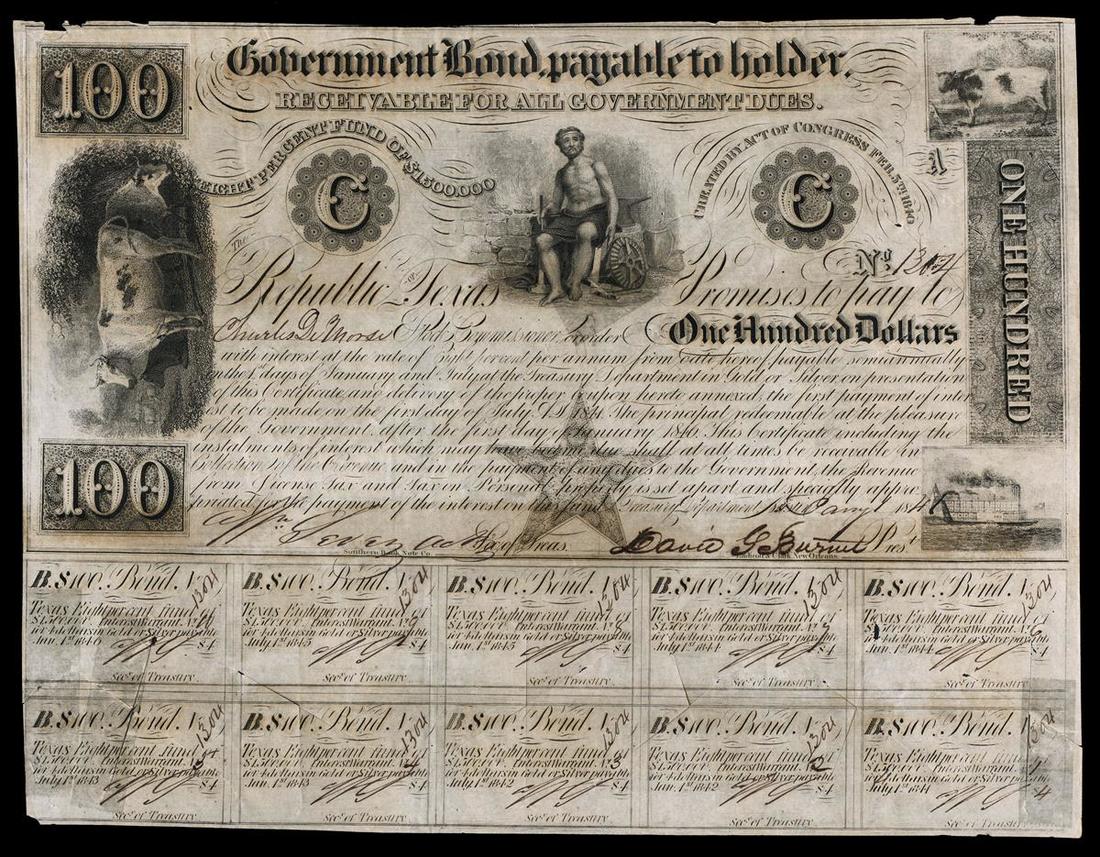 100
Government Bond, payable to holder.
RECEIVABLE FOR ALL GOVERNMENT DUES.
EIGHT PER CENT FUND OF $1,500,000
CREATED BY ACT OF CONGRESS FEB. 5TH 1840
C
C
A
ONE HUNDRED
No. 1304
The Republic of Texas Promises to pay to
Charles De Morse Commissioner or order One Hundred Dollars
with interest at the rate of Eight per cent per annum from date hereof payable semi annually
on the 1st days of January and July at the Treasury Department in Gold or Silver, on presentation
of this Certificate and delivery of the proper coupon hereto annexed, the first payment of inter
est to be made on the first day of July A.D. 1841. The principal redeemable at the pleasure
of the Government, after the first day of January 1846. This Certificate including the
instalments of interest which may have become due shall at all times be receivable in
Collection of the Revenue and in the payment of any dues to the Government, the Revenue
from License Tax and Tax on Personal property is set apart and specially appro
priated for the payment of the interest on this fund. Treasury Department 184
100
of Treas. David G Burnet Prest.
Southern Bank Note Co. New Orleans.
B. $100. Bond. No. 1304
Texas Eight per cent fund of
$1,500,000 Interest Warrant. No.
for 4 dollars in Gold or Silver payable
Jan. 1st 1846 $4
Secy. of Treasury
B. $100. Bond. No. 1304
Texas Eight per cent fund of
$1,500,000 Interest Warrant. No. 9
for 4 dollars in Gold or Silver payable
July 1st 1845 $4
Secy. of Treasury
B. $100. Bond. No. 1304
Texas Eight per cent fund of
$1,500,000 Interest Warrant. No. 8
for 4 dollars in Gold or Silver payable
Jan. 1st 1845 $4
Secy. of Treasury
B. $100. Bond. No. 1304
Texas Eight per cent fund of
$1,500,000 Interest Warrant. No. 7
for 4 dollars in Gold or Silver payable
July 1st 1844 $4
Secy. of Treasury
B. $100. Bond. No. 1304
Texas Eight per cent fund of
$1,500,000 Interest Warrant. No. 6
for 4 dollars in Gold or Silver payable
Jan. 1st 1844 $4
Secy. of Treasury
B. $100. Bond. No. 1304
Texas Eight per cent fund of
$1,500,000 Interest Warrant. No. 5
for 4 dollars in Gold or Silver payable
July 1st 1843 $4
Secy. of Treasury
B. $100. Bond. No. 1304
Texas Eight per cent fund of
$1,500,000 Interest Warrant. No. 4
for 4 dollars in Gold or Silver payable
Jan. 1st 1843 $4
Secy. of Treasury
B. $100. Bond. No. 1304
Texas Eight per cent fund of
$1,500,000 Interest Warrant. No. 3
for 4 dollars in Gold or Silver payable
July 1st 1842 $4
Secy. of Treasury
B. $100. Bond. No. 1304
Texas Eight per cent fund of
$1,500,000 Interest Warrant. No. 2
for 4 dollars in Gold or Silver payable
Jan. 1st 1842 $4
Secy. of Treasury
B. $100. Bond. No. 1304
Texas Eight per cent fund of
$1,500,000 Interest Warrant. No. 1
for 4 dollars in Gold or Silver payable
July 1st 1841 $4
Secy. of Treasury